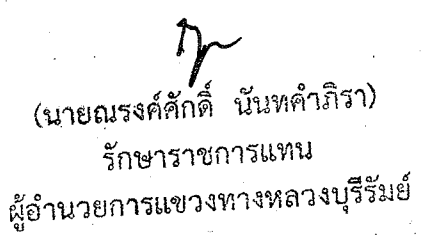 (นายณรงค์ศักดิ์ นันทคำภิรา)
รักษาราชการแทน
ผู้อำนวยการแขวงทางหลวงบุรีรัมย์